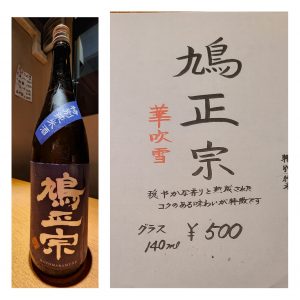 特別純米酒
鳩正宗
HATOMASAMUNE
鳩正宗
華吹雪
穏やかな香りと熟成された
コクのある味わいが特徴です
グラス
140ml
¥500
特別純米